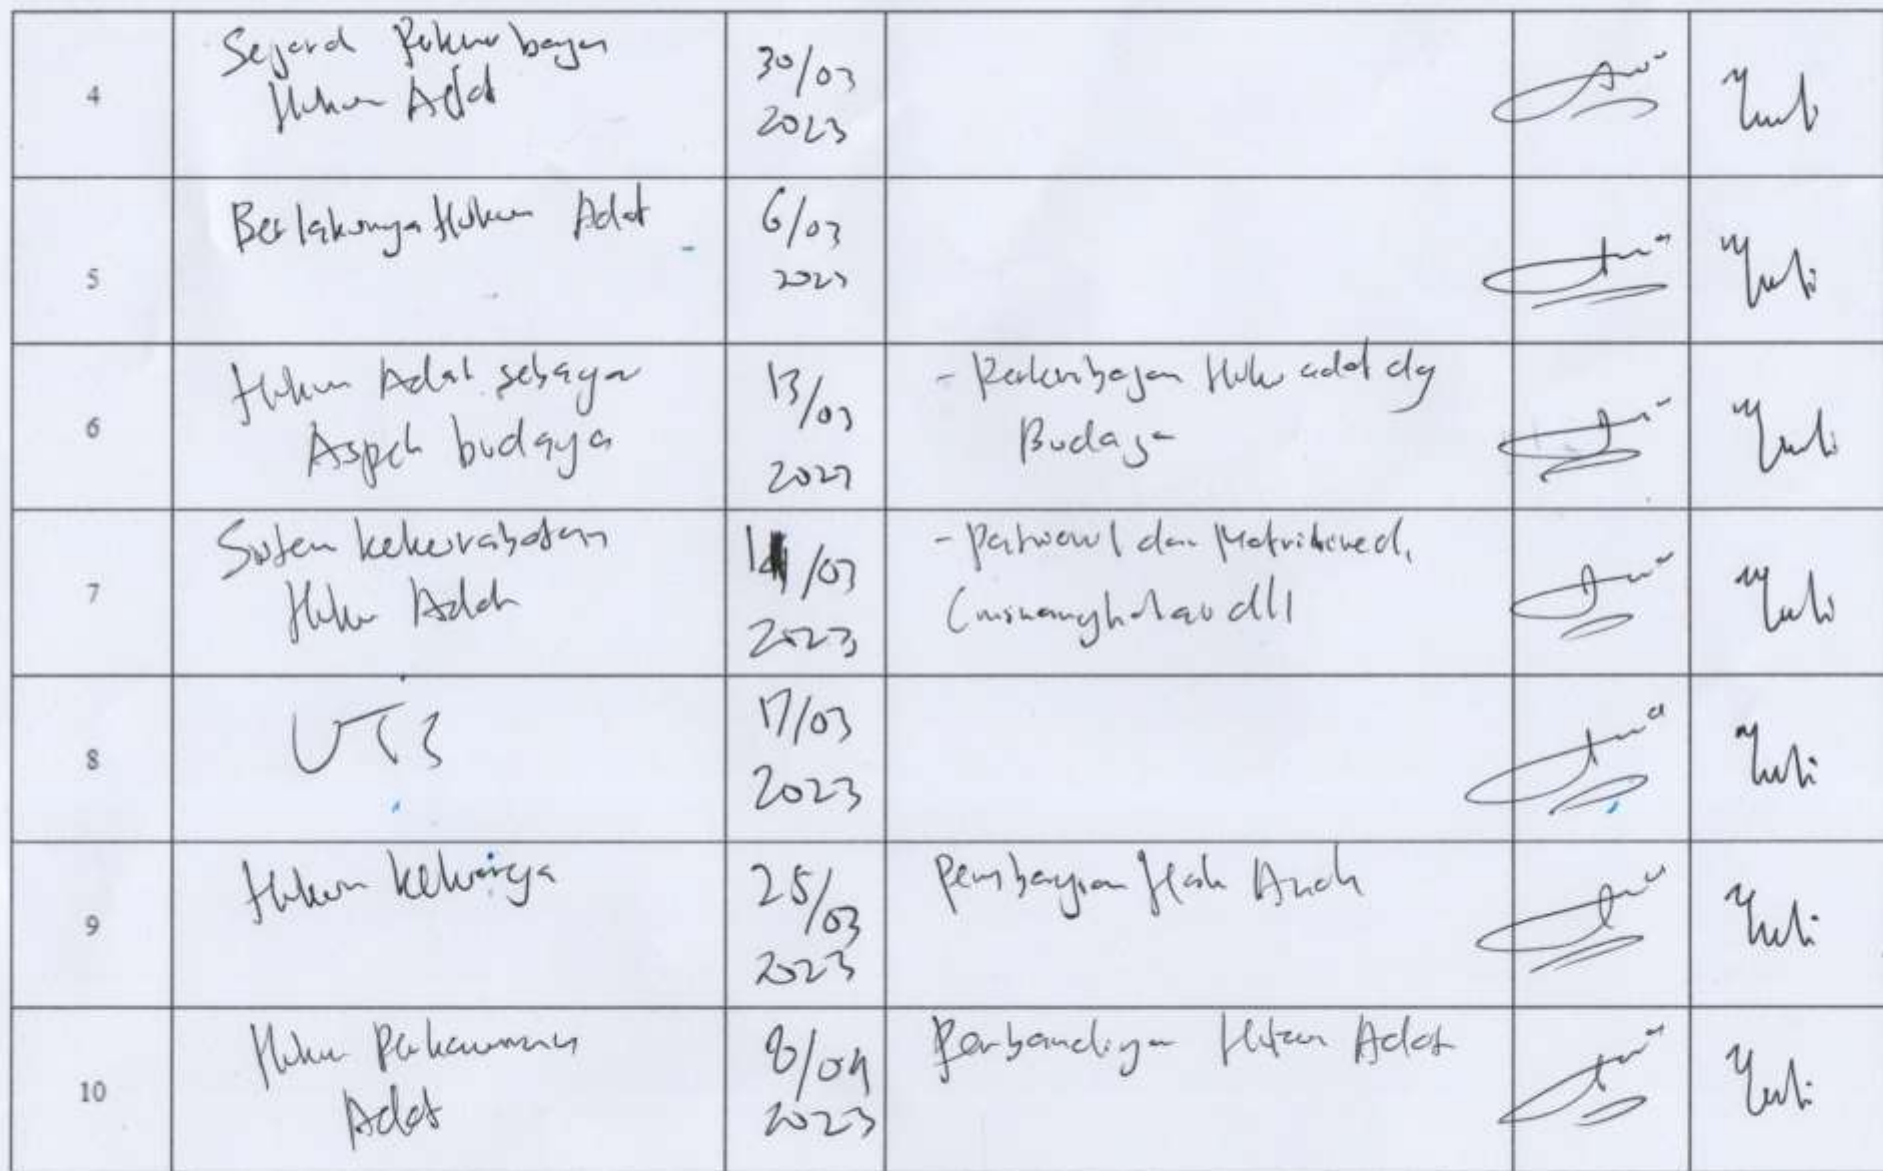 4
Sejarah Perkembangan
Hukum Adat
30/03
2023
5
Berlakunya Hukum Adat
6/03
2023
6
Hukum Adat sebagai
Aspek budaya
13/03
2023
- Perkembangan Hukum adat dg
Budaya
7
Sistem kekerabatan
Hukum Adat
/03
2023
- dan Matrilineal,
(minangkabau dll
8
UTS
17/03
2023
9
Hukum keluarga
25/03
2023
Pembagian Hak Anak
10
Hukum Perkawinan
Adat
8/04
2023
Perbandingan Hukum Adat
Yuli
Yuli
Yuli
Yuli
Yuli
Yuli
Yuli